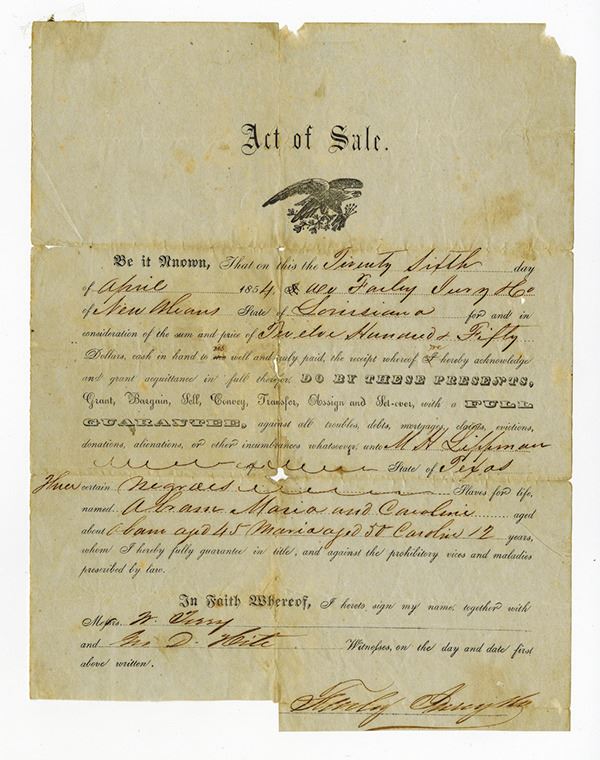 Act of Sale.
Be it Known, That on this the Twenty Sixth day
of April 1854, We Farley Jury & Co
of New Orleans State of Louisiana for and in
consideration of the sum and price of Twelve Hundred & Fifty
Dollars, cash in hand to us well and truly paid, the receipt whereof we hereby acknowledge
and grant acquittance in full therefor, DO BY THESE PRESENTS,
Grant, Bargain, Sell, Convey, Transfer, Assign and Set-over, with a FULL
GUARANTEE, against all troubles, debts, mortgages, claims, evictions,
donations, alienations, or other incumbrances whatsoever, unto M H Lippman
State of Texas
Three certain Negroes Slaves for life,
named Abram Maria and Caroline aged
about Abam aged 45 Maria aged 50 Caroline 12 years,
whom I hereby fully guarantee in title, and against the prohibitory vices and maladies
prescribed by law.
In Faith Whereof, I hereto sign my name, together with
Messrs W. Terry
and D. Hite Witnesses, on the day and date first
above written.
Farley Jury & Co